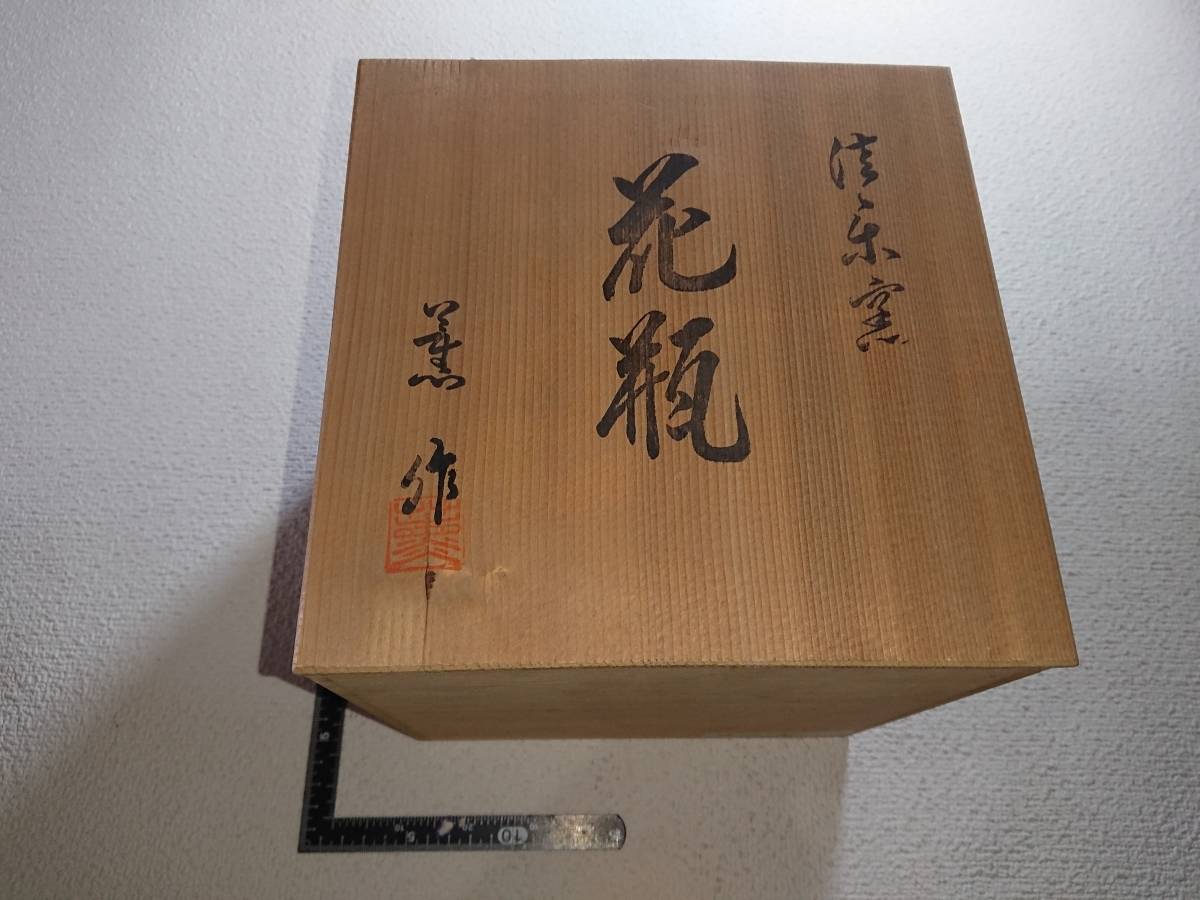 清楽窯
花瓶
薫作
5
5
10